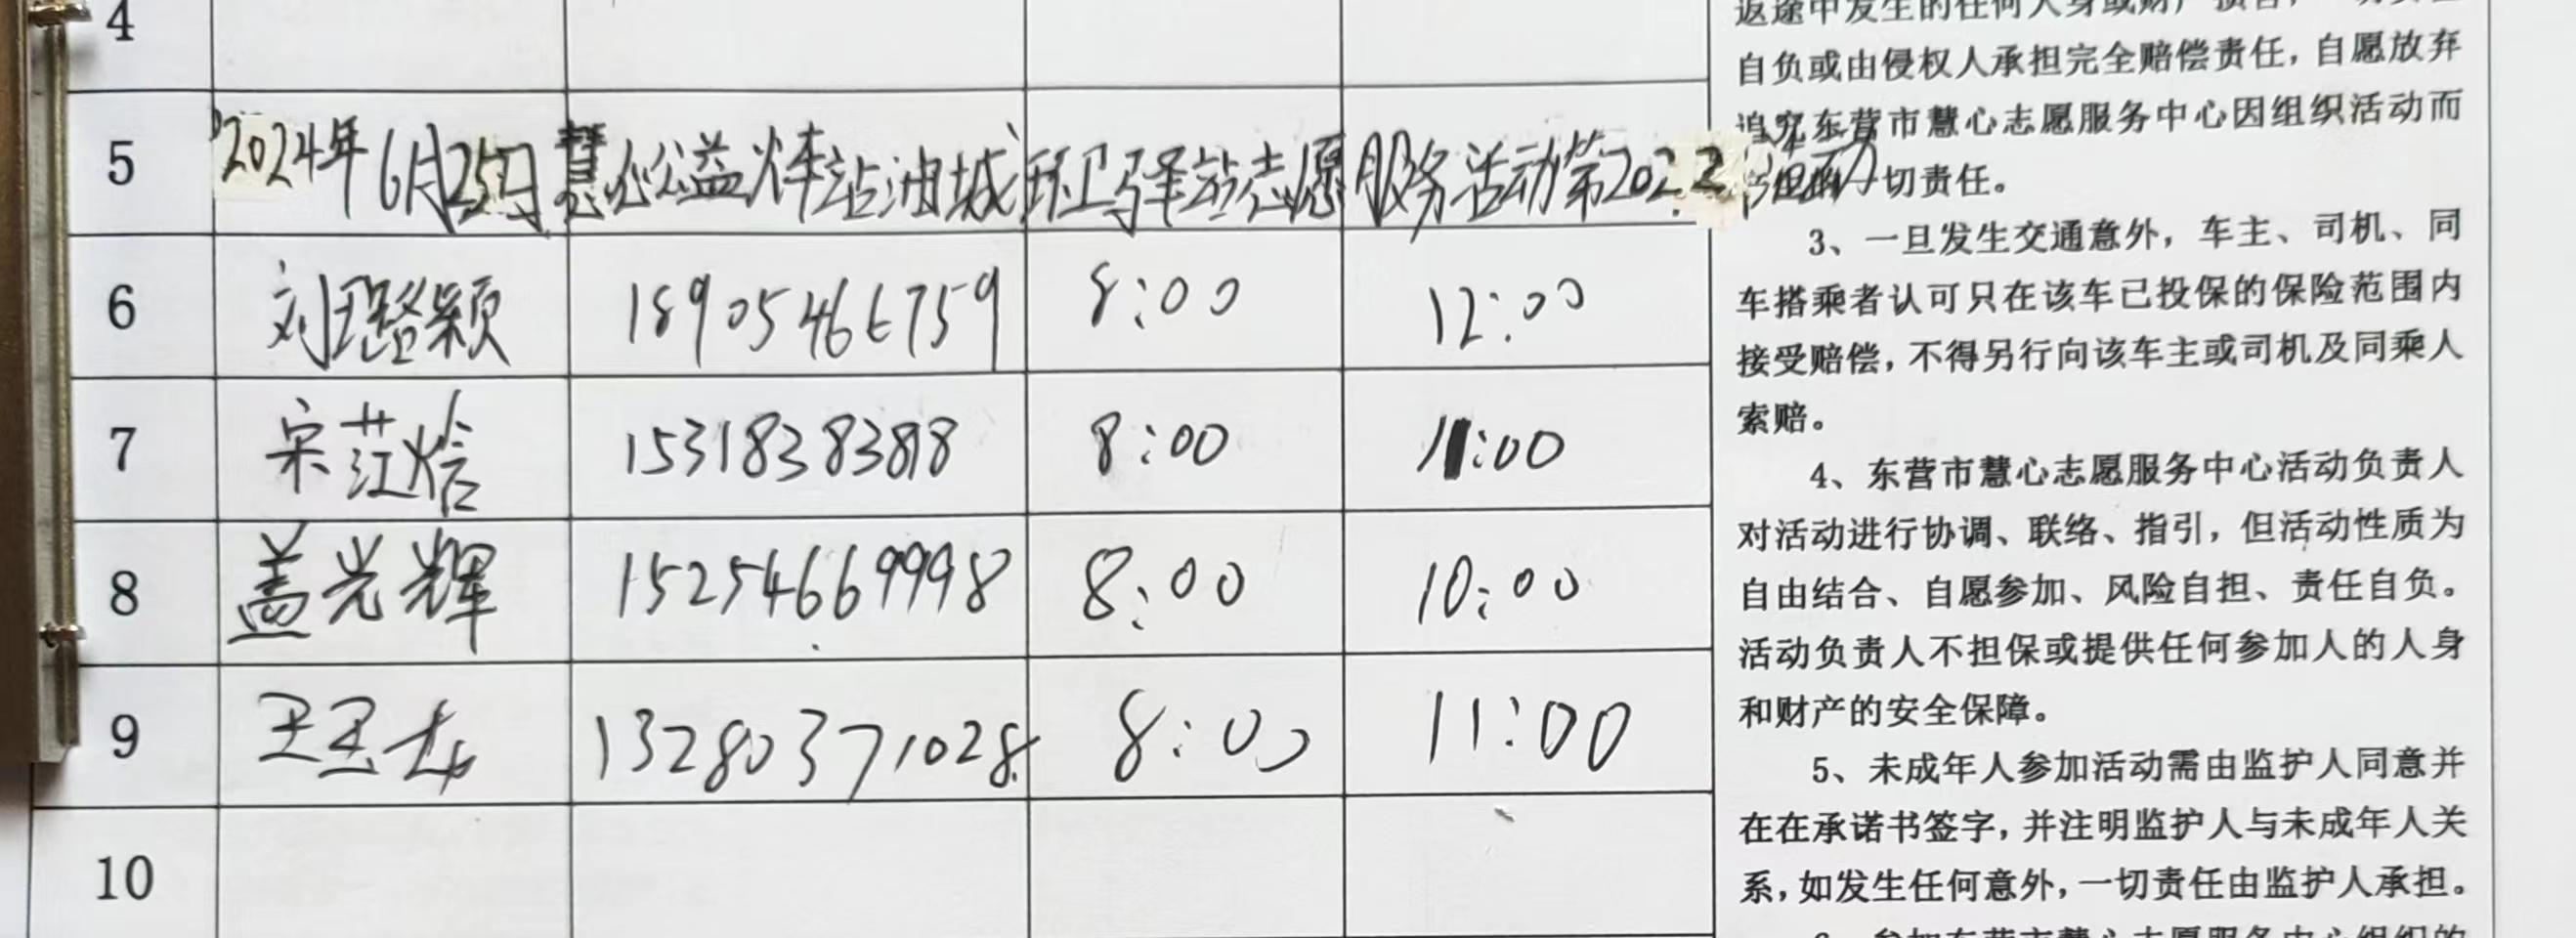 4
5 2024年6月25日慧心公益驿站油城环卫驿站志愿服务活动第2022
6 刘璐颖 18905466759 8:00 12:00
7 宋莊焓 15318383818 8:00 11:00
8 盖光辉 15254669998 8:00 10:00
9 王玉龙 13280371028 8:00 11:00
10
返途中发生的任何人身或财产损害，一切责任
自负或由侵权人承担完全赔偿责任，自愿放弃
追究东营市慧心志愿服务中心因组织活动而
一切责任。
3、一旦发生交通意外，车主、司机、同
车搭乘者认可只在该车已投保的保险范围内
接受赔偿，不得另行向该车主或司机及同乘人
索赔。
4、东营市慧心志愿服务中心活动负责人
对活动进行协调、联络、指引，但活动性质为
自由结合、自愿参加、风险自担、责任自负。
活动负责人不担保或提供任何参加人的人身
和财产的安全保障。
5、未成年人参加活动需由监护人同意并
在在承诺书签字，并注明监护人与未成年人关
系，如发生任何意外，一切责任由监护人承担。
6、参加东营市慧心志愿服务中心组织的